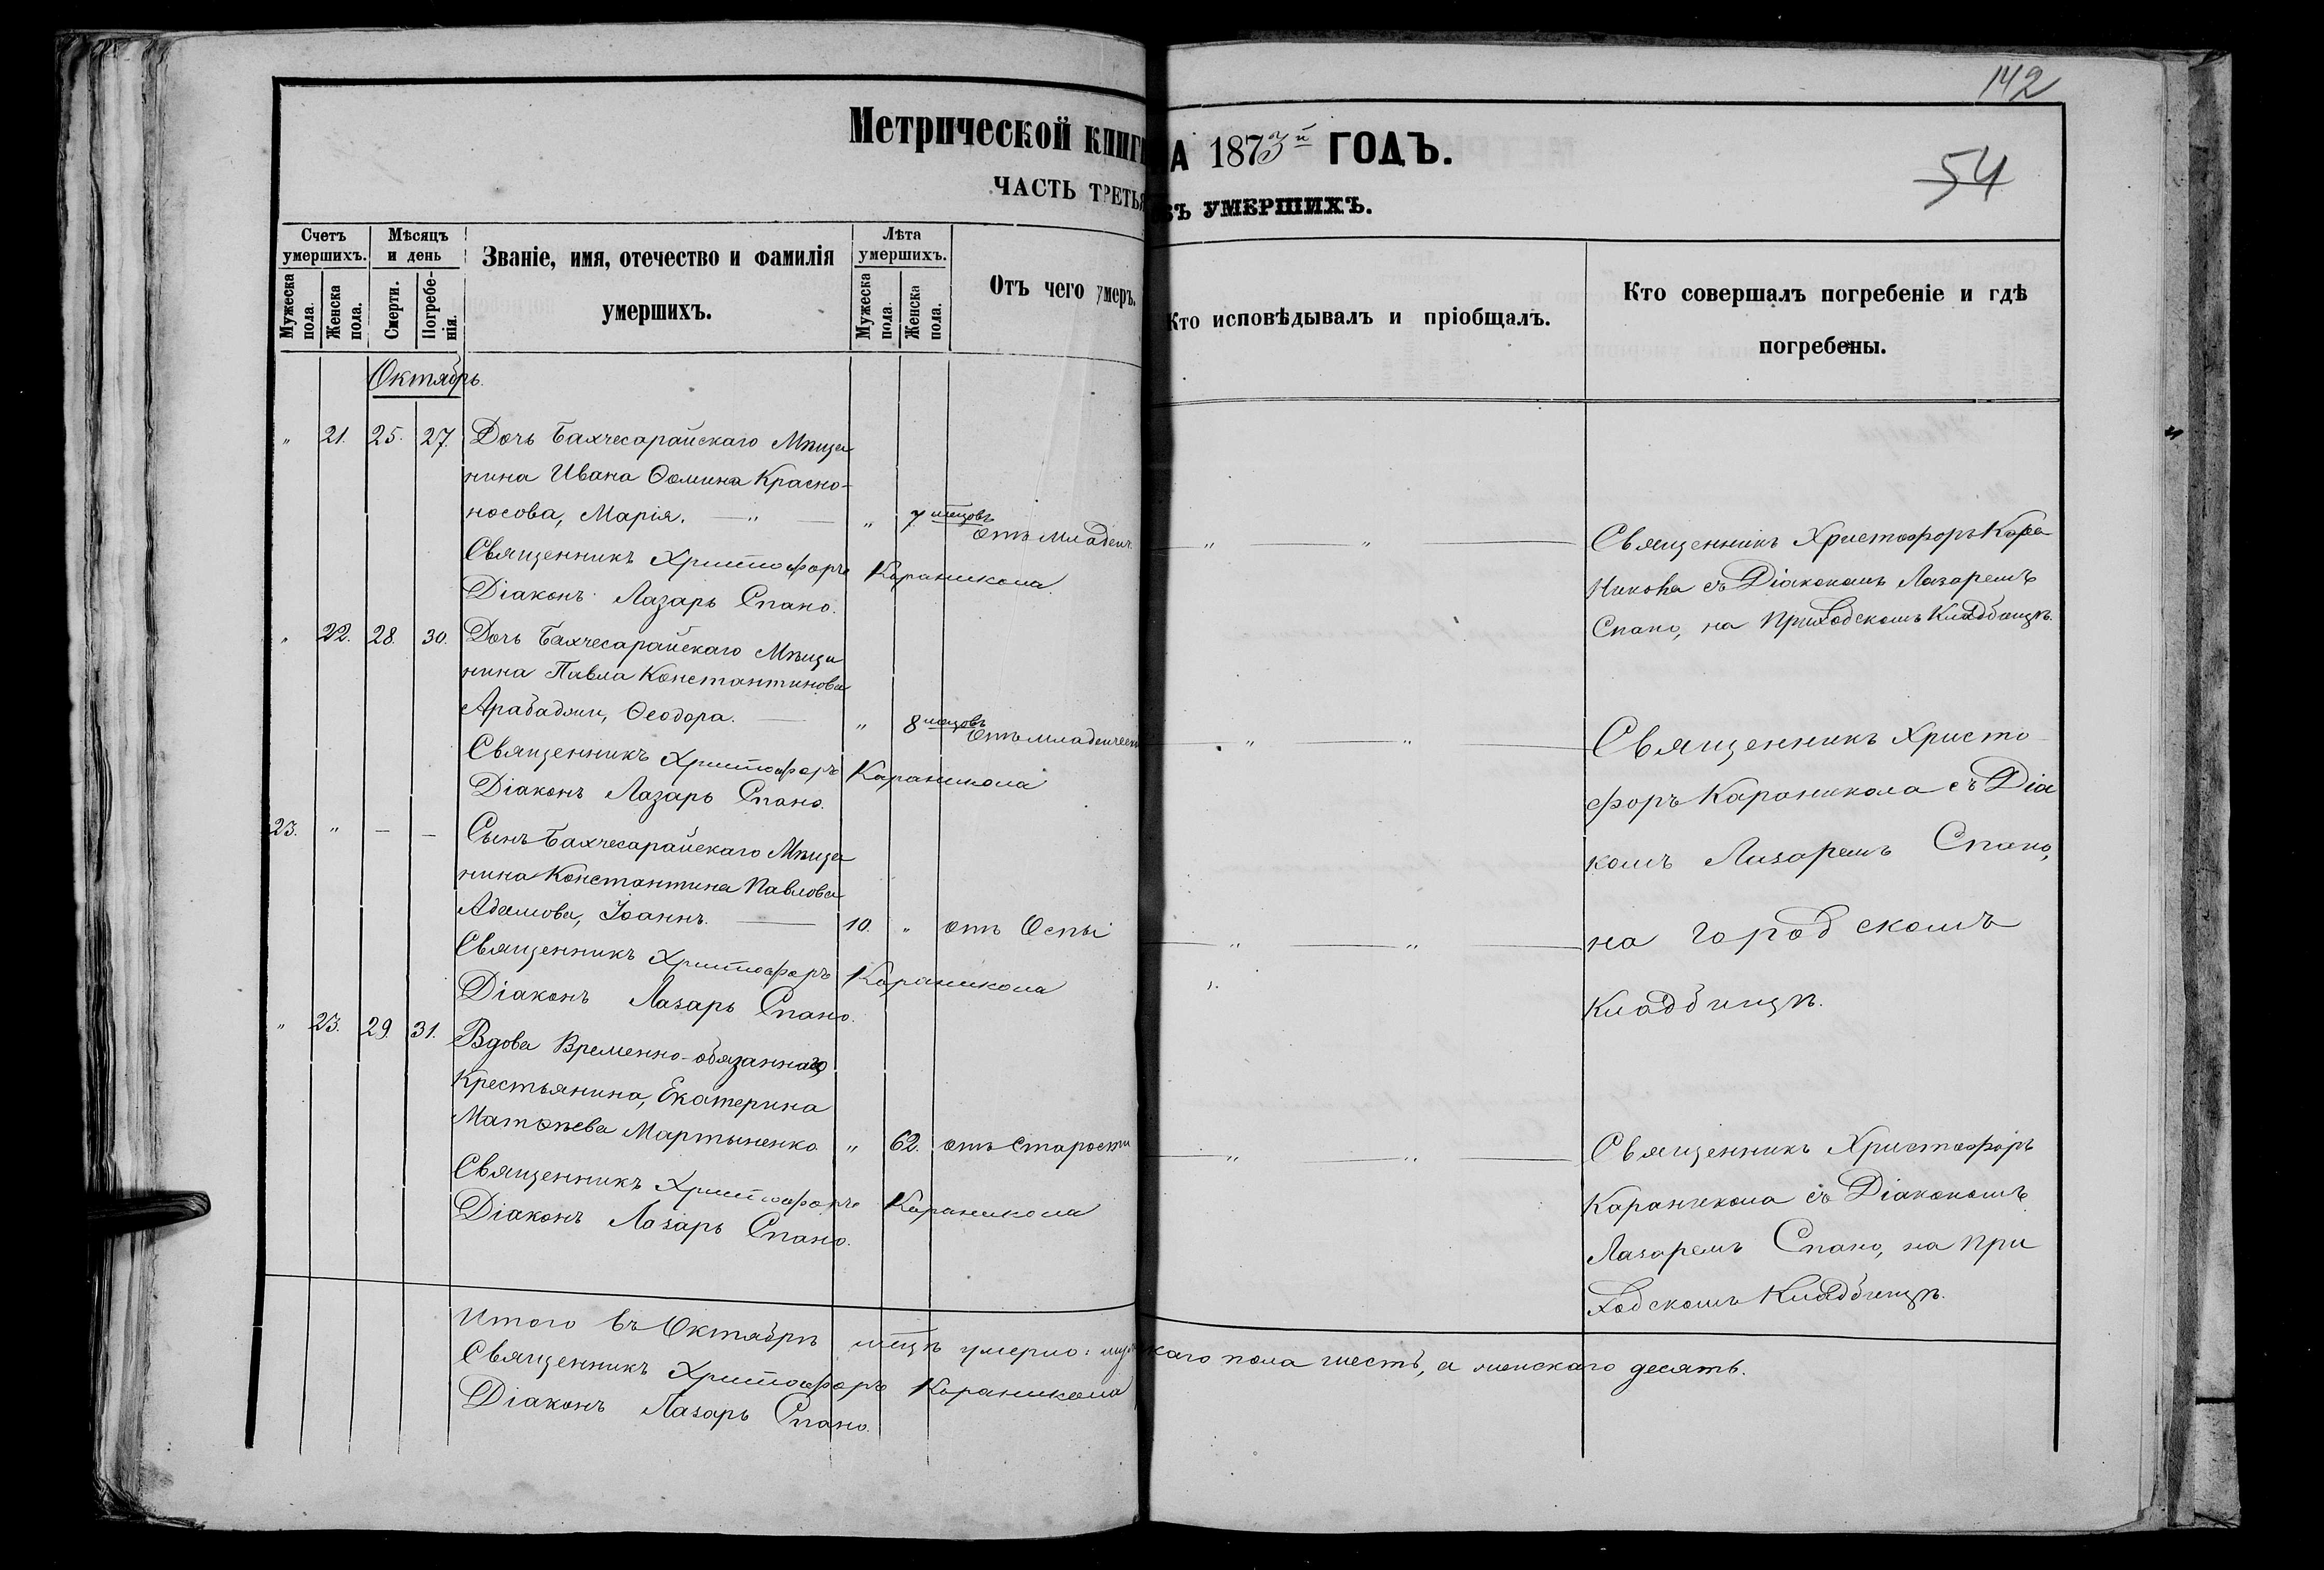 142
Метрической книги
А 1873й ГОДЪ.
54
ЧАСТЬ ТРЕТЬЯ
УМЕРШИХЪ.
Счетъ умершихъ.
Мужеска пола.
Женска пола.
Мѣсяцъ и день
Смерти.
Погребенія.
Званіе, имя, отечество и фамилія
умершихъ.
Лѣта умершихъ.
Мужеска пола.
Женска пола.
Отъ чего умеръ.
Кто исповѣдывалъ и пріобщалъ.
Кто совершалъ погребеніе и гдѣ
погребены.
Октябрь.
" 21. 25. 27. Дочь Бахчесарайскаго Мѣща
нина Ивана Ѳомина Красно-
носова, Марія. — " — " 7 мцовъ Отъ младенч
Священникъ Христофоръ Караникола
Діаконъ Лазарь Спано.
Священникъ Христофоръ Кара
Никола съ Діакономъ Лазаремъ
Спано, на Приходскомъ Кладбищѣ.
" 22. 28. 30. Дочь Бахчесарайскаго Мѣща
нина Павла Константинова
Арабаджи, Ѳеодора. — " 8 мцовъ Отъ младенческ
Священникъ Христофоръ Караникола
Діаконъ Лазарь Спано.
Священникъ Христо
форъ Караникола съ Діа
комъ Лазаремъ Спано,
на городскомъ
Кладбищѣ.
23. " — — Сынъ Бахчесарайскаго Мѣща
нина Константина Павлова
Адамова, Іоаннъ. — 10. " отъ Оспы
Священникъ Христофоръ Караникола
Діаконъ Лазарь Спано.
" 23. 29. 31. Вдова Временно-обязаннаго
Крестьянина, Екатерина
Матѳѣева Мартыненко " 62. отъ Старости
Священникъ Христофоръ Караникола
Діаконъ Лазарь Спано.
Священникъ Христофоръ
Караникола съ Діакономъ
Лазаремъ Спано, на При
ходскомъ Кладбищѣ.
Итого въ Октябрѣ мцѣ умерло: мужскаго пола шесть, а женскаго десять.
Священникъ Христофоръ Караникола
Діаконъ Лазарь Спано.